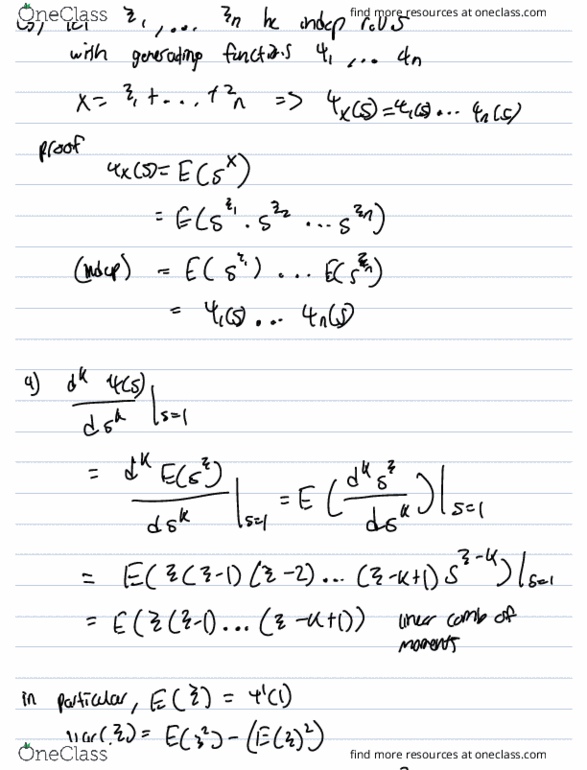 OneClass find more resources at oneclass.com
ξ₁, ... ξₙ be indep r.v.s
with generating functions ψ₁, ... ψₙ
X = ξ₁ + ... + ξₙ => ψₓ(s) = ψ₁(s) ... ψₙ(s)
proof
ψₓ(s) = E(s^X)
= E(s^ξ₁ · s^ξ₂ ... s^ξₙ)
(indep) = E(s^ξ₁) ... E(s^ξₙ)
= ψ₁(s) ... ψₙ(s)
4) d^k ψ(s) / ds^k |s=1
= d^k E(s^ξ) / ds^k |s=1 = E(d^k s^ξ / ds^k)|s=1
= E(ξ(ξ-1)(ξ-2)...(ξ-k+1) s^ξ-k)|s=1
= E(ξ(ξ-1)...(ξ-k+1)) linear comb of
moments
in particular, E(ξ) = ψ'(1)
var(ξ) = E(ξ²) - (E(ξ)²)
OneClass find more resources at oneclass.com